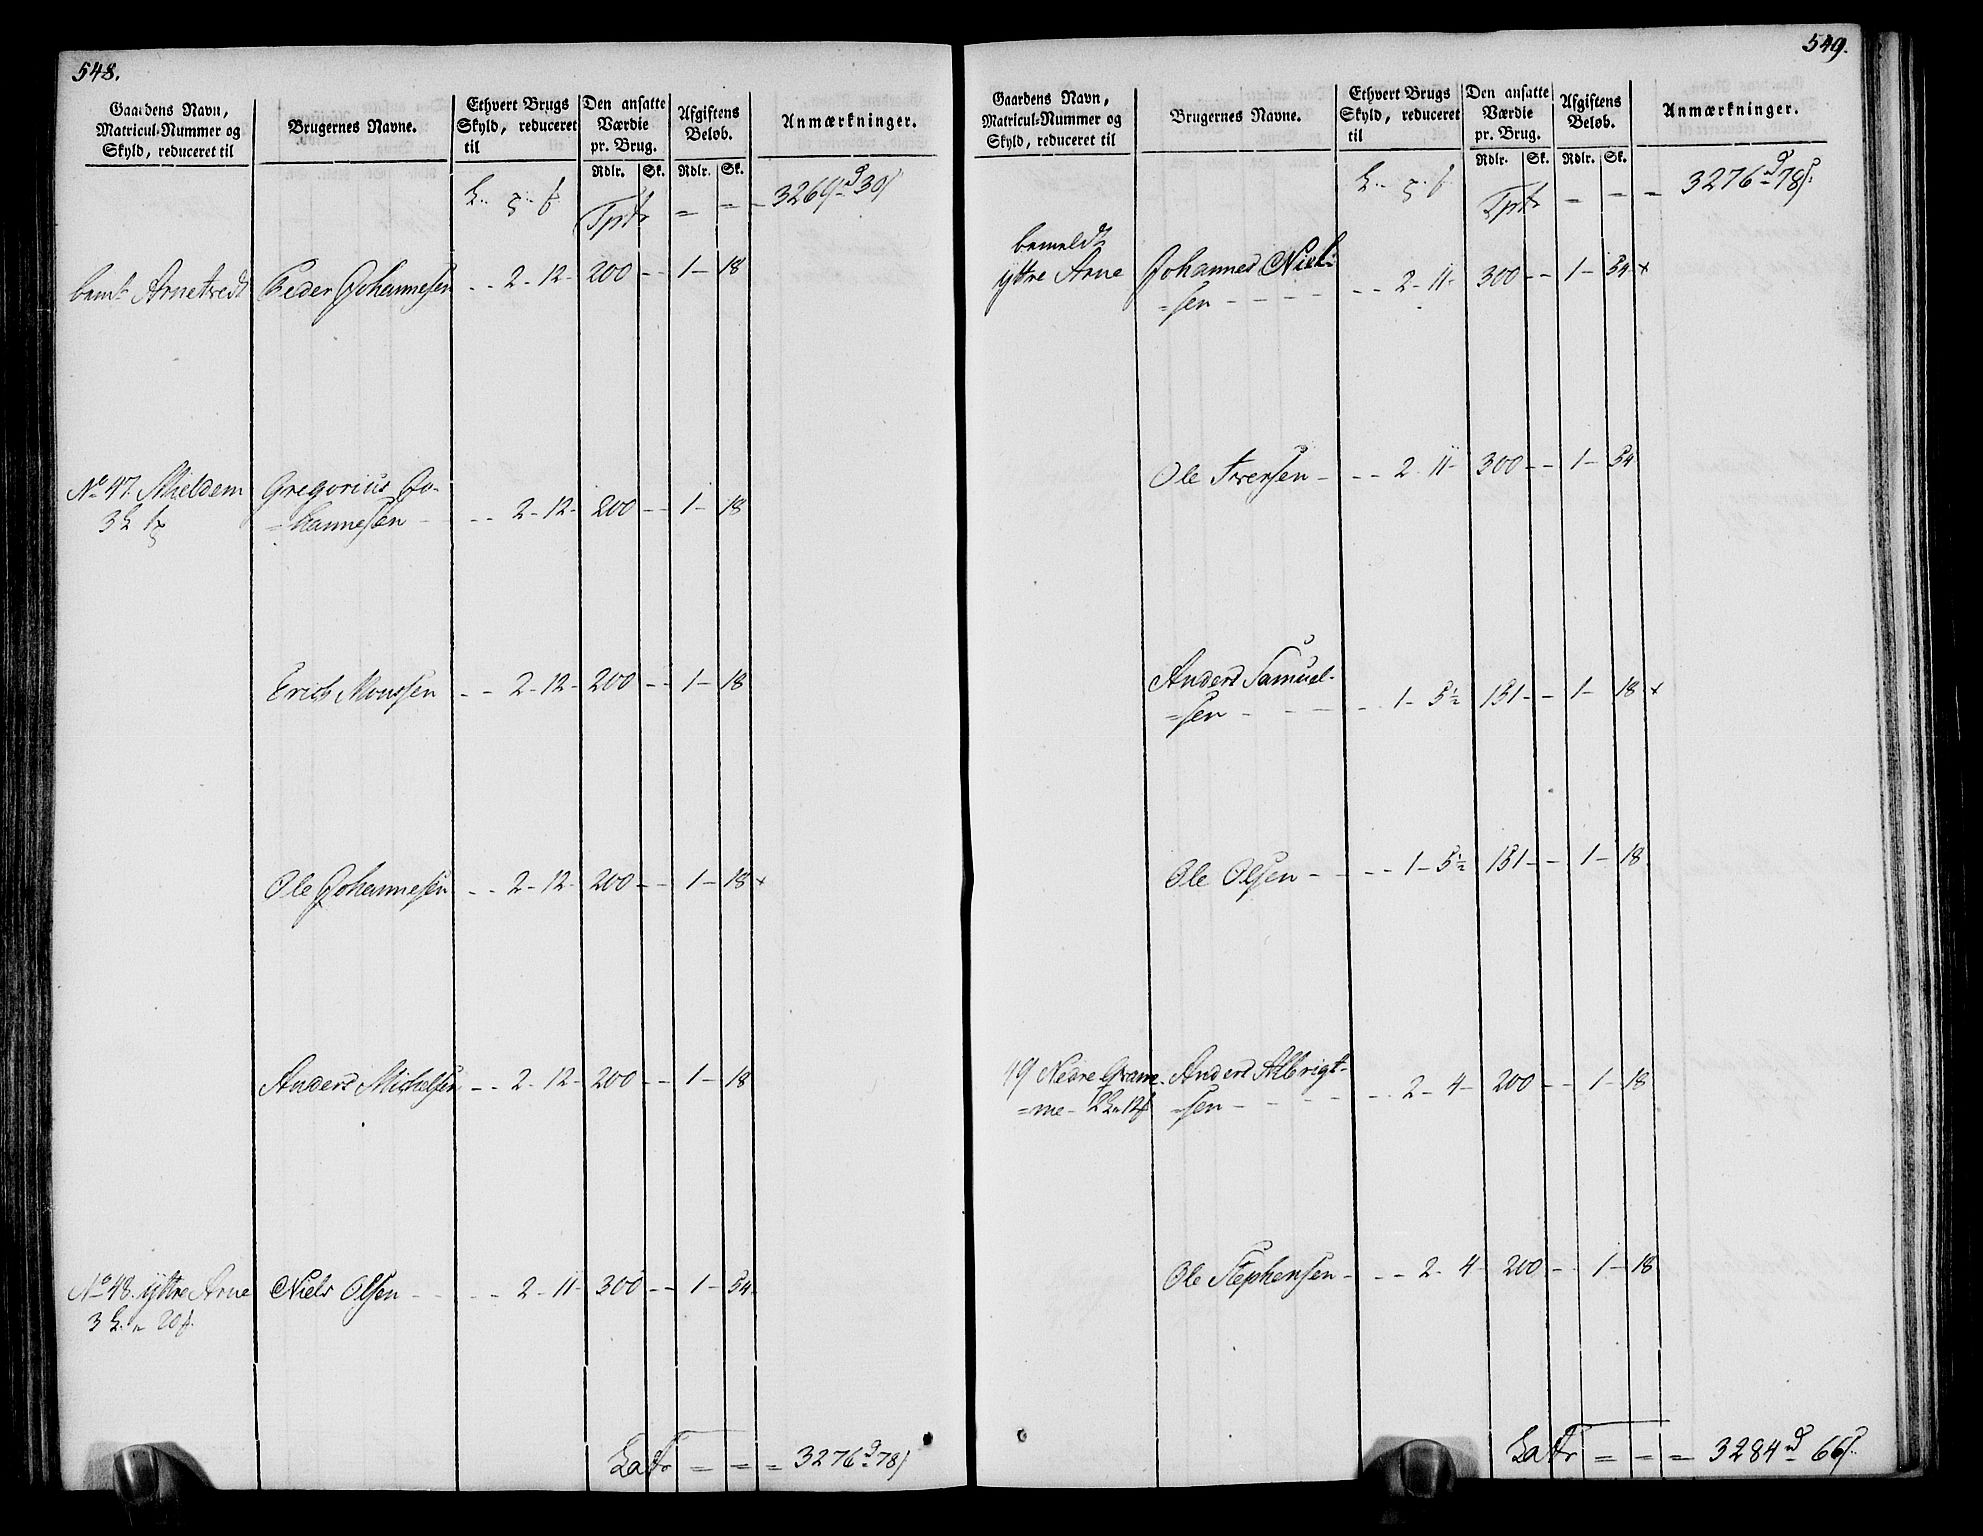 548.
Gaardens Navn,
Matricul-Nummer og
Skyld, reduceret til
Brugernes Navne.
Ethvert Brugs
Skyld, reduceret
til
Den ansatte
Værdie
pr. Brug.
Rdlr. Sk.
Afgiftens
Beløb.
Rdlr. Sk.
Anmærkninger.
Tprt = = = 3269 30
Arnetvedt Peder Johannesen - - 2 - 12 - 200 - - 1 - 18
No 47. Mieldem Gregorius Jo-
=hannesen - - - 2 - 12 - 200 - - 1 - 18
Erich Monssen - - 2 - 12 - 200 - - 1 - 18
Ole Johannesen - - 2 - 12 - 200 - - 1 - 18 x
Anders Michelsen - - 2 - 12 - 200 - - 1 - 18
No 48. ÿttre Arne Niels Olsen - - - 2 - 11 - 300 - - 1 - 54
Latr = = = 3276 78
549.
Gaardens Navn,
Matricul-Nummer og
Skyld, reduceret til
Brugernes Navne.
Ethvert Brugs
Skyld, reduceret
til
Den ansatte
Værdie
pr. Brug.
Rdlr. Sk.
Afgiftens
Beløb.
Rdlr. Sk.
Anmærkninger.
Tprt = = = 3276 78
bemeldt
ÿttre Arne Johannes Niel-
=sen - - - - 2 - 11 - 300 - - 1 - 54 x
Ole Iversen - - - 2 - 11 - 300 - - 1 - 54
Anders Samuel-
=sen - - - 1 - 5½ 151 - - 1 - 18 x
Ole Olsen - - - 1 - 5½ 151 - - 1 - 18
49 Nedre Anders Albrigt-
=sen - - - - 2 - 4 - 200 - - 1 - 18
Ole Stephensen - - - 2 - 4 - 200 - - 1 - 18
Latr = = = 3284 66